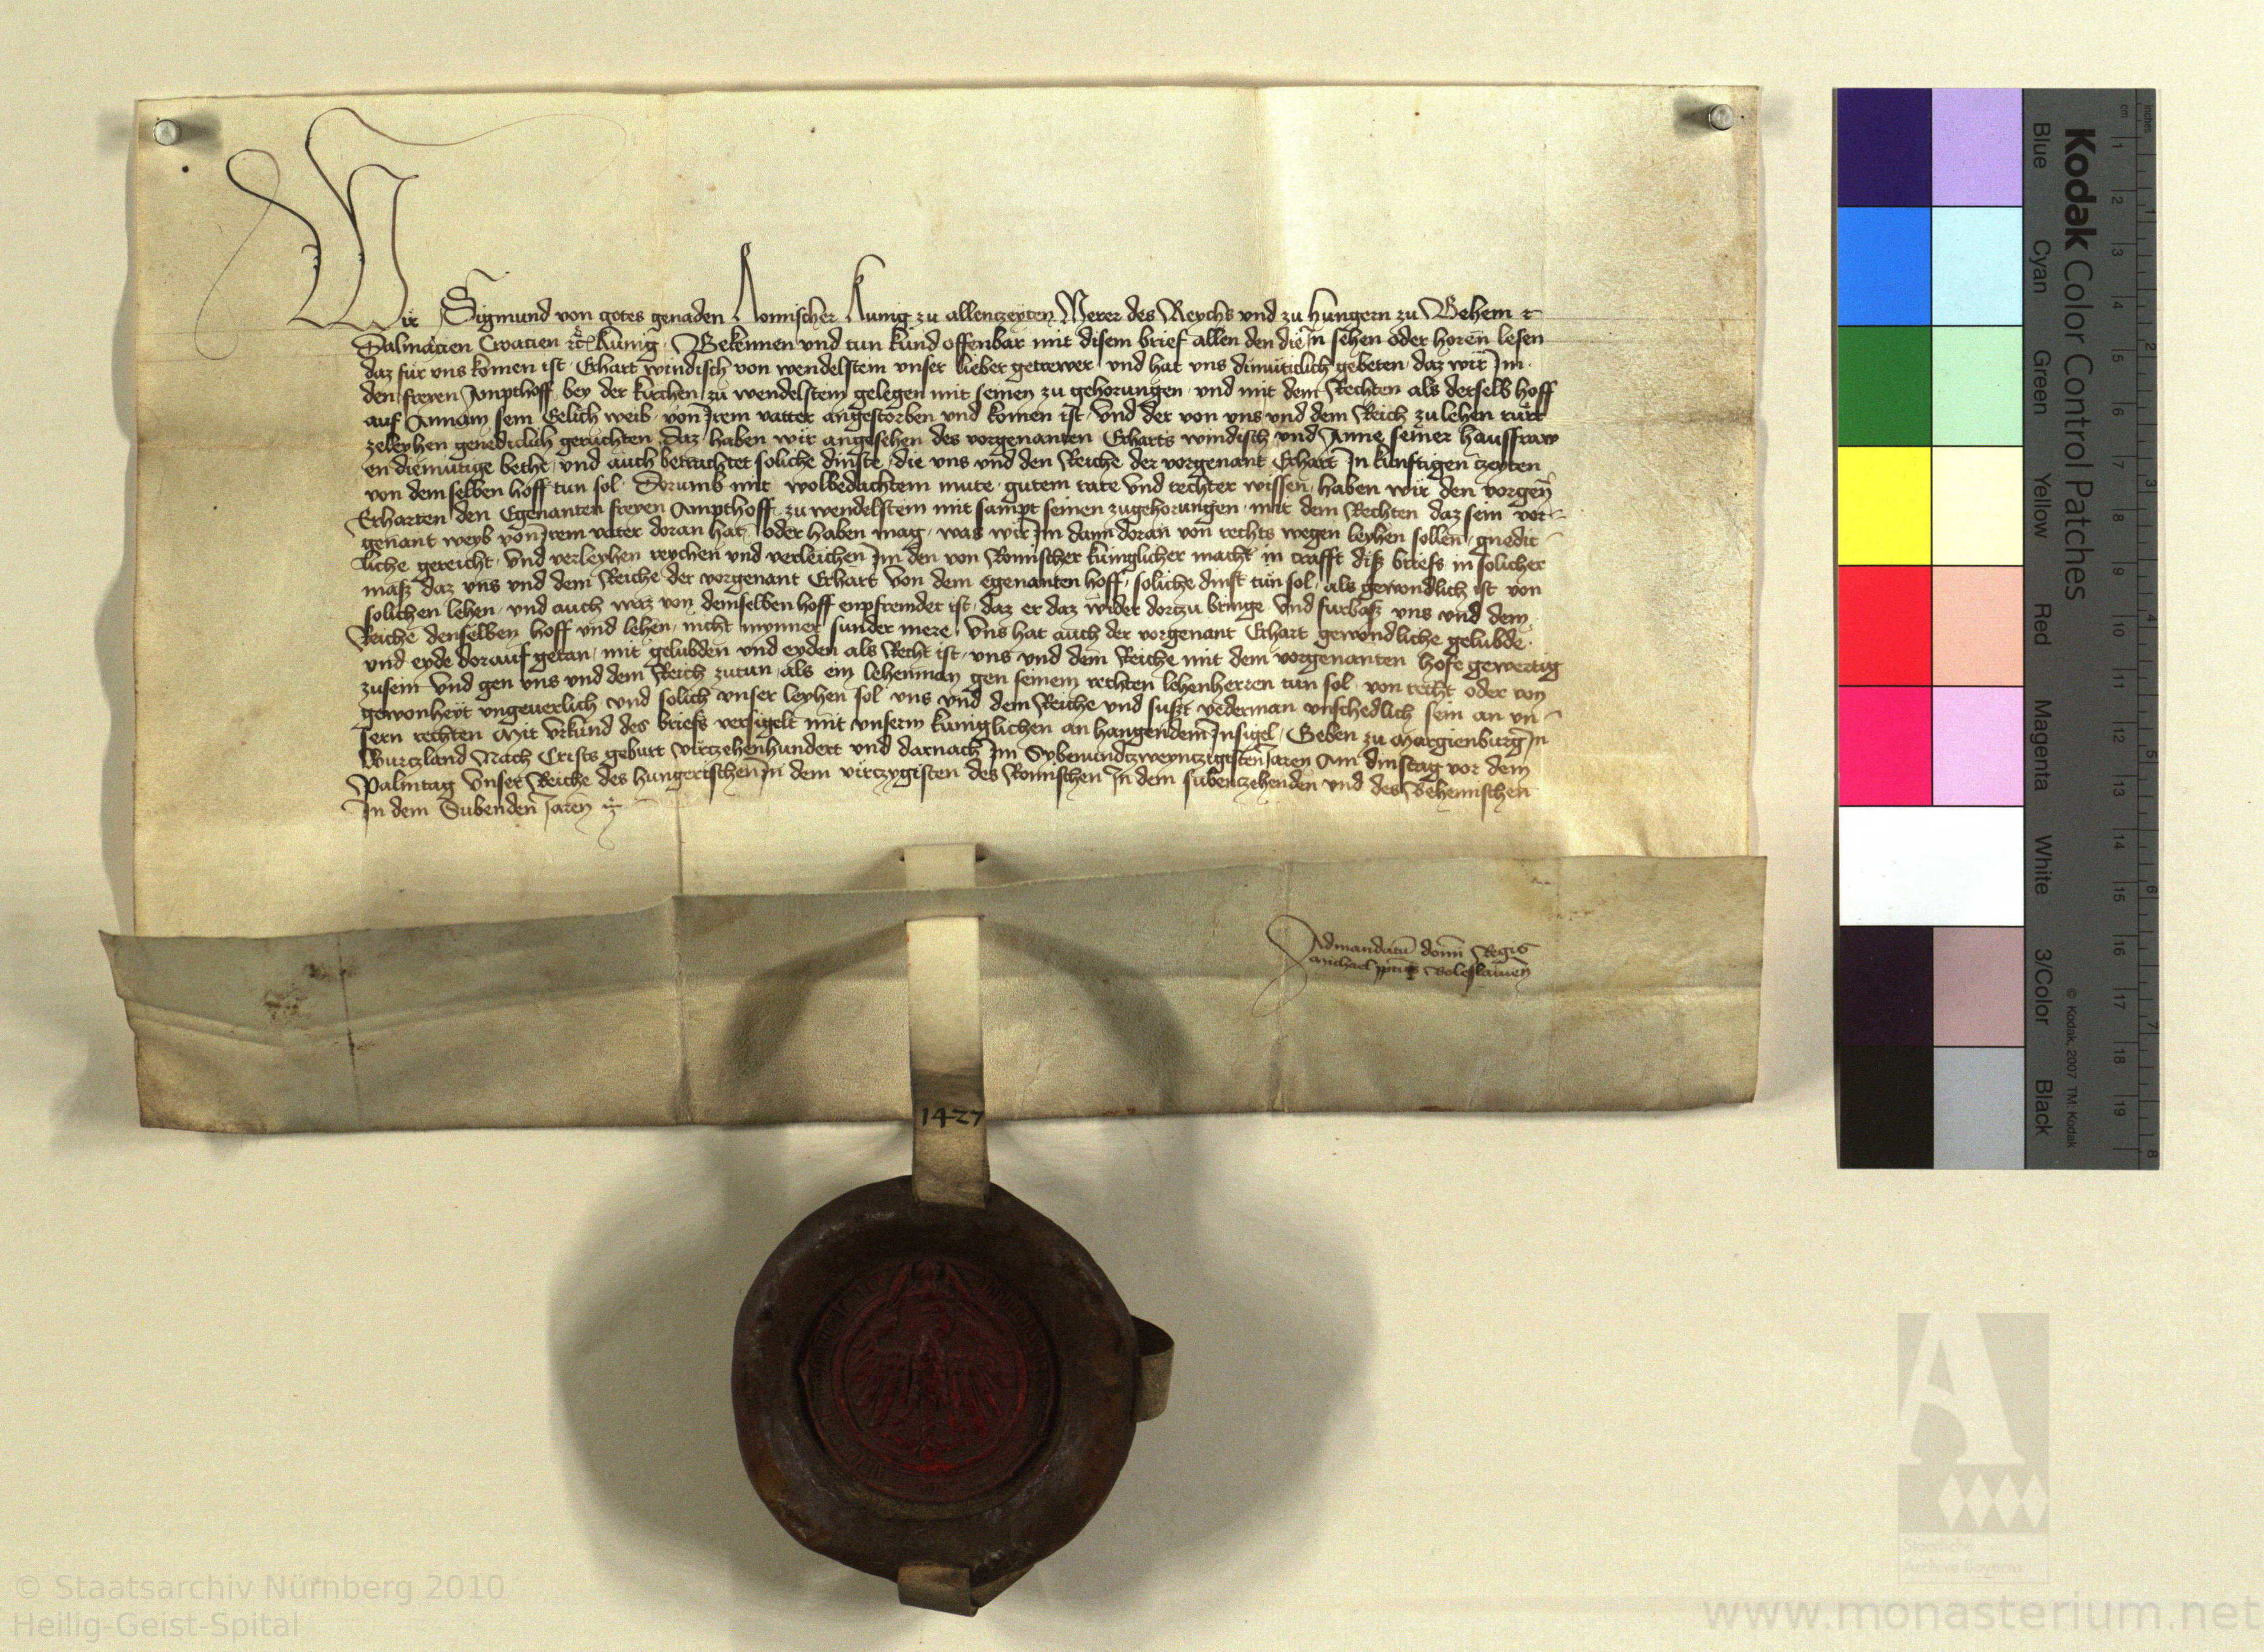 Wir Sigmund von gotes genaden Romischer Kunig zu allenczeyten Merer des Reychs vnd zu hungern zu Behem ꝛc
Dalmacien Croacien ꝛc Kunig · Bekennen vnd tun kund offenbar mit disem brief allen den die in sehen oder horen lesen
daz fur vns komen ist · Erhart windisch von wendelstein vnser lieber getrewer · vnd hat vns dimuticlich gebeten daz wir Im ·
den freyen Ampthoff bey der kirchen zu wendelstein gelegen mit seinen zu gehorungen · vnd mit dem Rechten als derselb hoff
auf Annam sein Eelich weib · von Irem vatter angestorben vnd komen ist · vnd der von vns vnd dem Reich zu lehen rurt
zeleyhen genediclich geruchten Daz haben wir angesehen des vorgenanten Erharts windisch vnd Anne seiner hausfraw
en diemutige bethe, vnd auch betrachtet soliche dinste, die vns vnd den Reiche der vorgenant Erhart In kunftigen czeyten
von dem selben hoff tun sol · Dorumb mit wolbedachtem mute · gutem rate vnd rechter wissen, haben wir den vorgen̄
Erharten den Egenanten freyen Ampthoff zu wendelstein mit sampt seinen zugehorungen · mit dem Rechten daz sein vor-
genant weyb von Irem vatter doran hat, oder haben mag, was wir Im dann doran von rechts wegen leyhen sollen, gnedic-
liche gereicht · vnd verleyhen reychen vnd verleichen Im den von Romischer kuniglicher macht in crafft diß briefs in solicher
maß daz vns vnd dem Reiche der vorgenant Erhart von dem egenanten hoff, soliche dinst tun sol, als gewondlich ist von
solichen lehen, vnd auch waz von demselben hoff enpfremdet ist, daz er daz wider dorczu bringe vnd furbaß vns vnd dem
Reiche denselben hoff vnd lehen, nicht mynner sunder mere, Vns hat auch der vorgenant Erhart gewondliche gelubde ·
vnd eyde dorauf getan, mit gelubden vnd eyden als Recht ist, vns vnd dem Reiche mit dem vorgenanten hofe gewertig
zusein vnd gen vns vnd dem Reich zutun als ein lehenman gen seinem rechten lehenherren tun sol von recht oder von
gewonheyt vngeuerlich vnd solich vnser leyhen sol vns vnd dem Reiche vnd sußt yederman vnschedlich sein an vn-
sern rechten Mit vrkund des briefs versigelt mit vnserm kuniglichen an hangendem Insigel, Geben zu Margienburg In
Wurczland Nach Crists geburt virczehenhundert vnd darnach Im Sybenundczweynczigisten Jaren Am dinstag vor dem
Palmtag Vnser Reiche des hungerischen In dem virczygisten des Romischen In dem subenzehenden vnd des Behemischen
In dem Subenden Jaren ꝛc
Ad mandatū domī Regis
Michael ppt̄us Boleslauien̄
1427
Kodak Color Control Patches
© Kodak, 2007 TM: Kodak
Blue Cyan Green Yellow Red Magenta White 3/Color Black
inches 1 2 3 4 5 6 7 8
cm 1 2 3 4 5 6 7 8 9 10 11 12 13 14 15 16 17 18 19
Staatliche
Archive Bayerns
© Staatsarchiv Nürnberg 2010
Heilig-Geist-Spital
www.monasterium.net